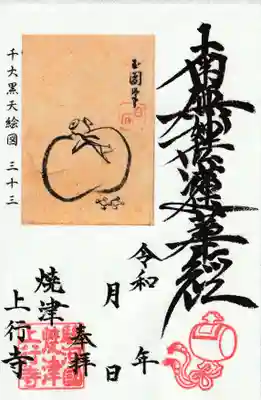 南無妙法蓮華経
令和 年
月 日
奉拝
焼津
上行寺
千大黒天絵図 三十三